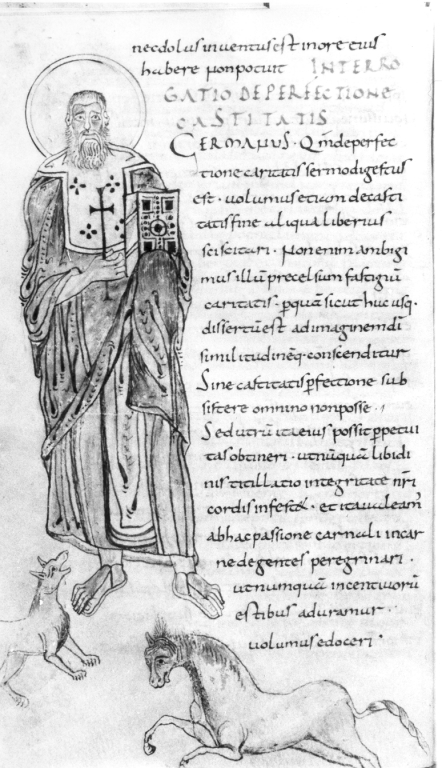 nec dolus inventus est in ore eius
habere non potuit INTERRO
GATIO DE PERFECTIONE
CASTITATIS
GERMANUS · Qm de perfec
tione caritatis sermo digestus
est · volumus etiam de casti
tatis fine aliqua liberius
sciscitari · Non enim ambigi
mus illū precelsum fastigiū
caritatis · p quā sicut huc usq ·
dissertū est ad imaginem di
similitudineq · conscenditur
Sine castitatis pfectione sub
sistere omnino non posse ·
Sed utrū ita eius possit ppetui
tas obtineri · ut nūquā libidi
nis titillatio integritatē nri
cordis infestet · et ita velut eam
ab hac passione carnali in car
ne degentes peregrinari ·
ut numquā incentivorū
estibus aduramur ·
volumus edoceri ·